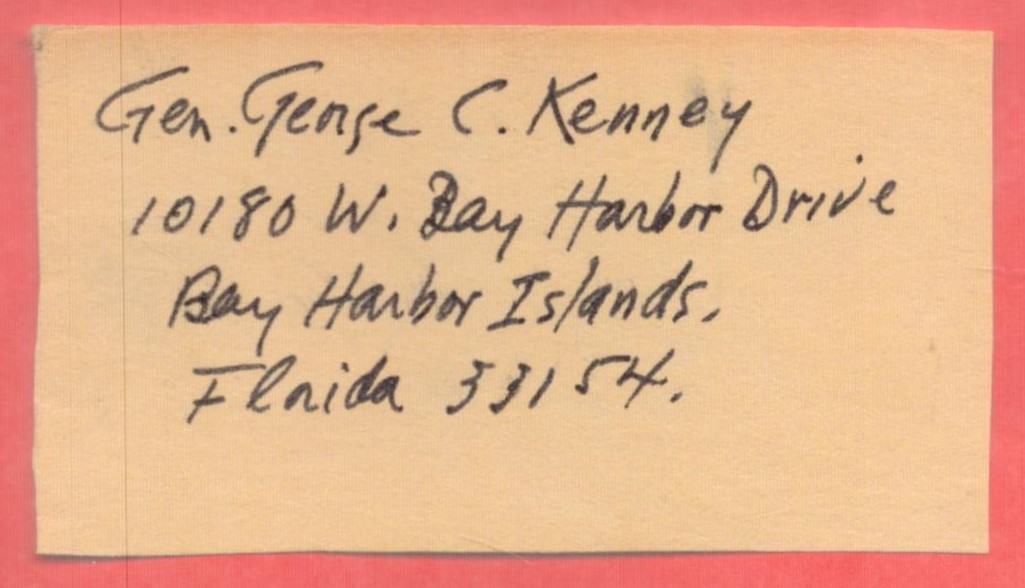 Gen. George C. Kenney
10180 W. Bay Harbor Drive
Bay Harbor Islands.
Florida 33154.